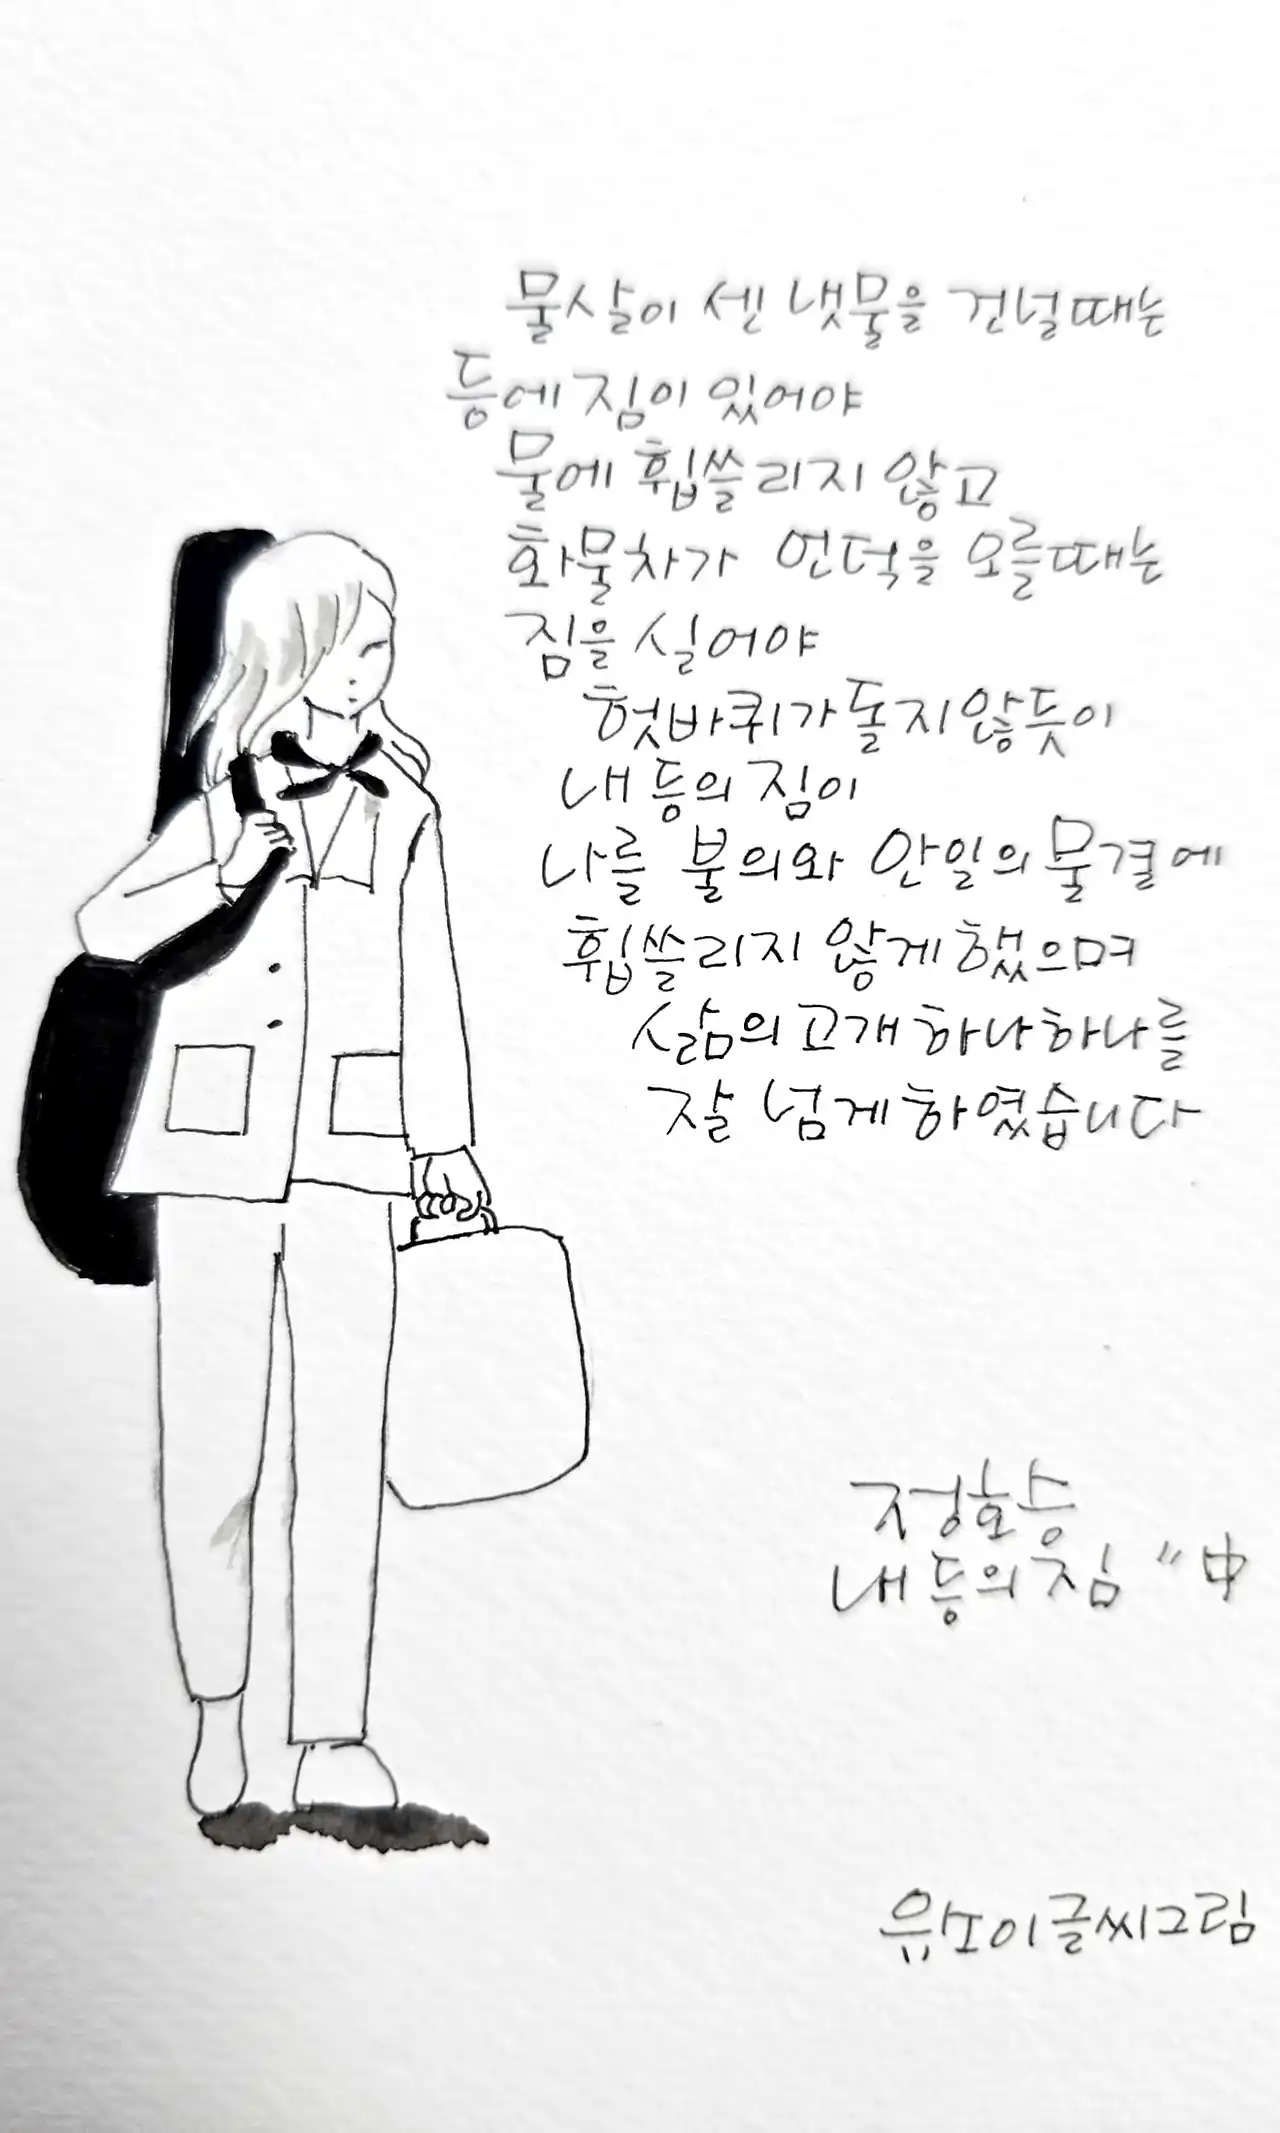 물살이 센 냇물을 건널때는
등에 짐이 있어야
물에 휩쓸리지 않고
화물차가 언덕을 오를때는
짐을 실어야
헛바퀴가 돌지않듯이
내 등의 짐이
나를 불의와 안일의 물결에
휩쓸리지 않게 했으며
삶의 고개 하나하나를
잘 넘게 하였습니다
정호승
내 등의 짐 " 中
유소이글씨그림